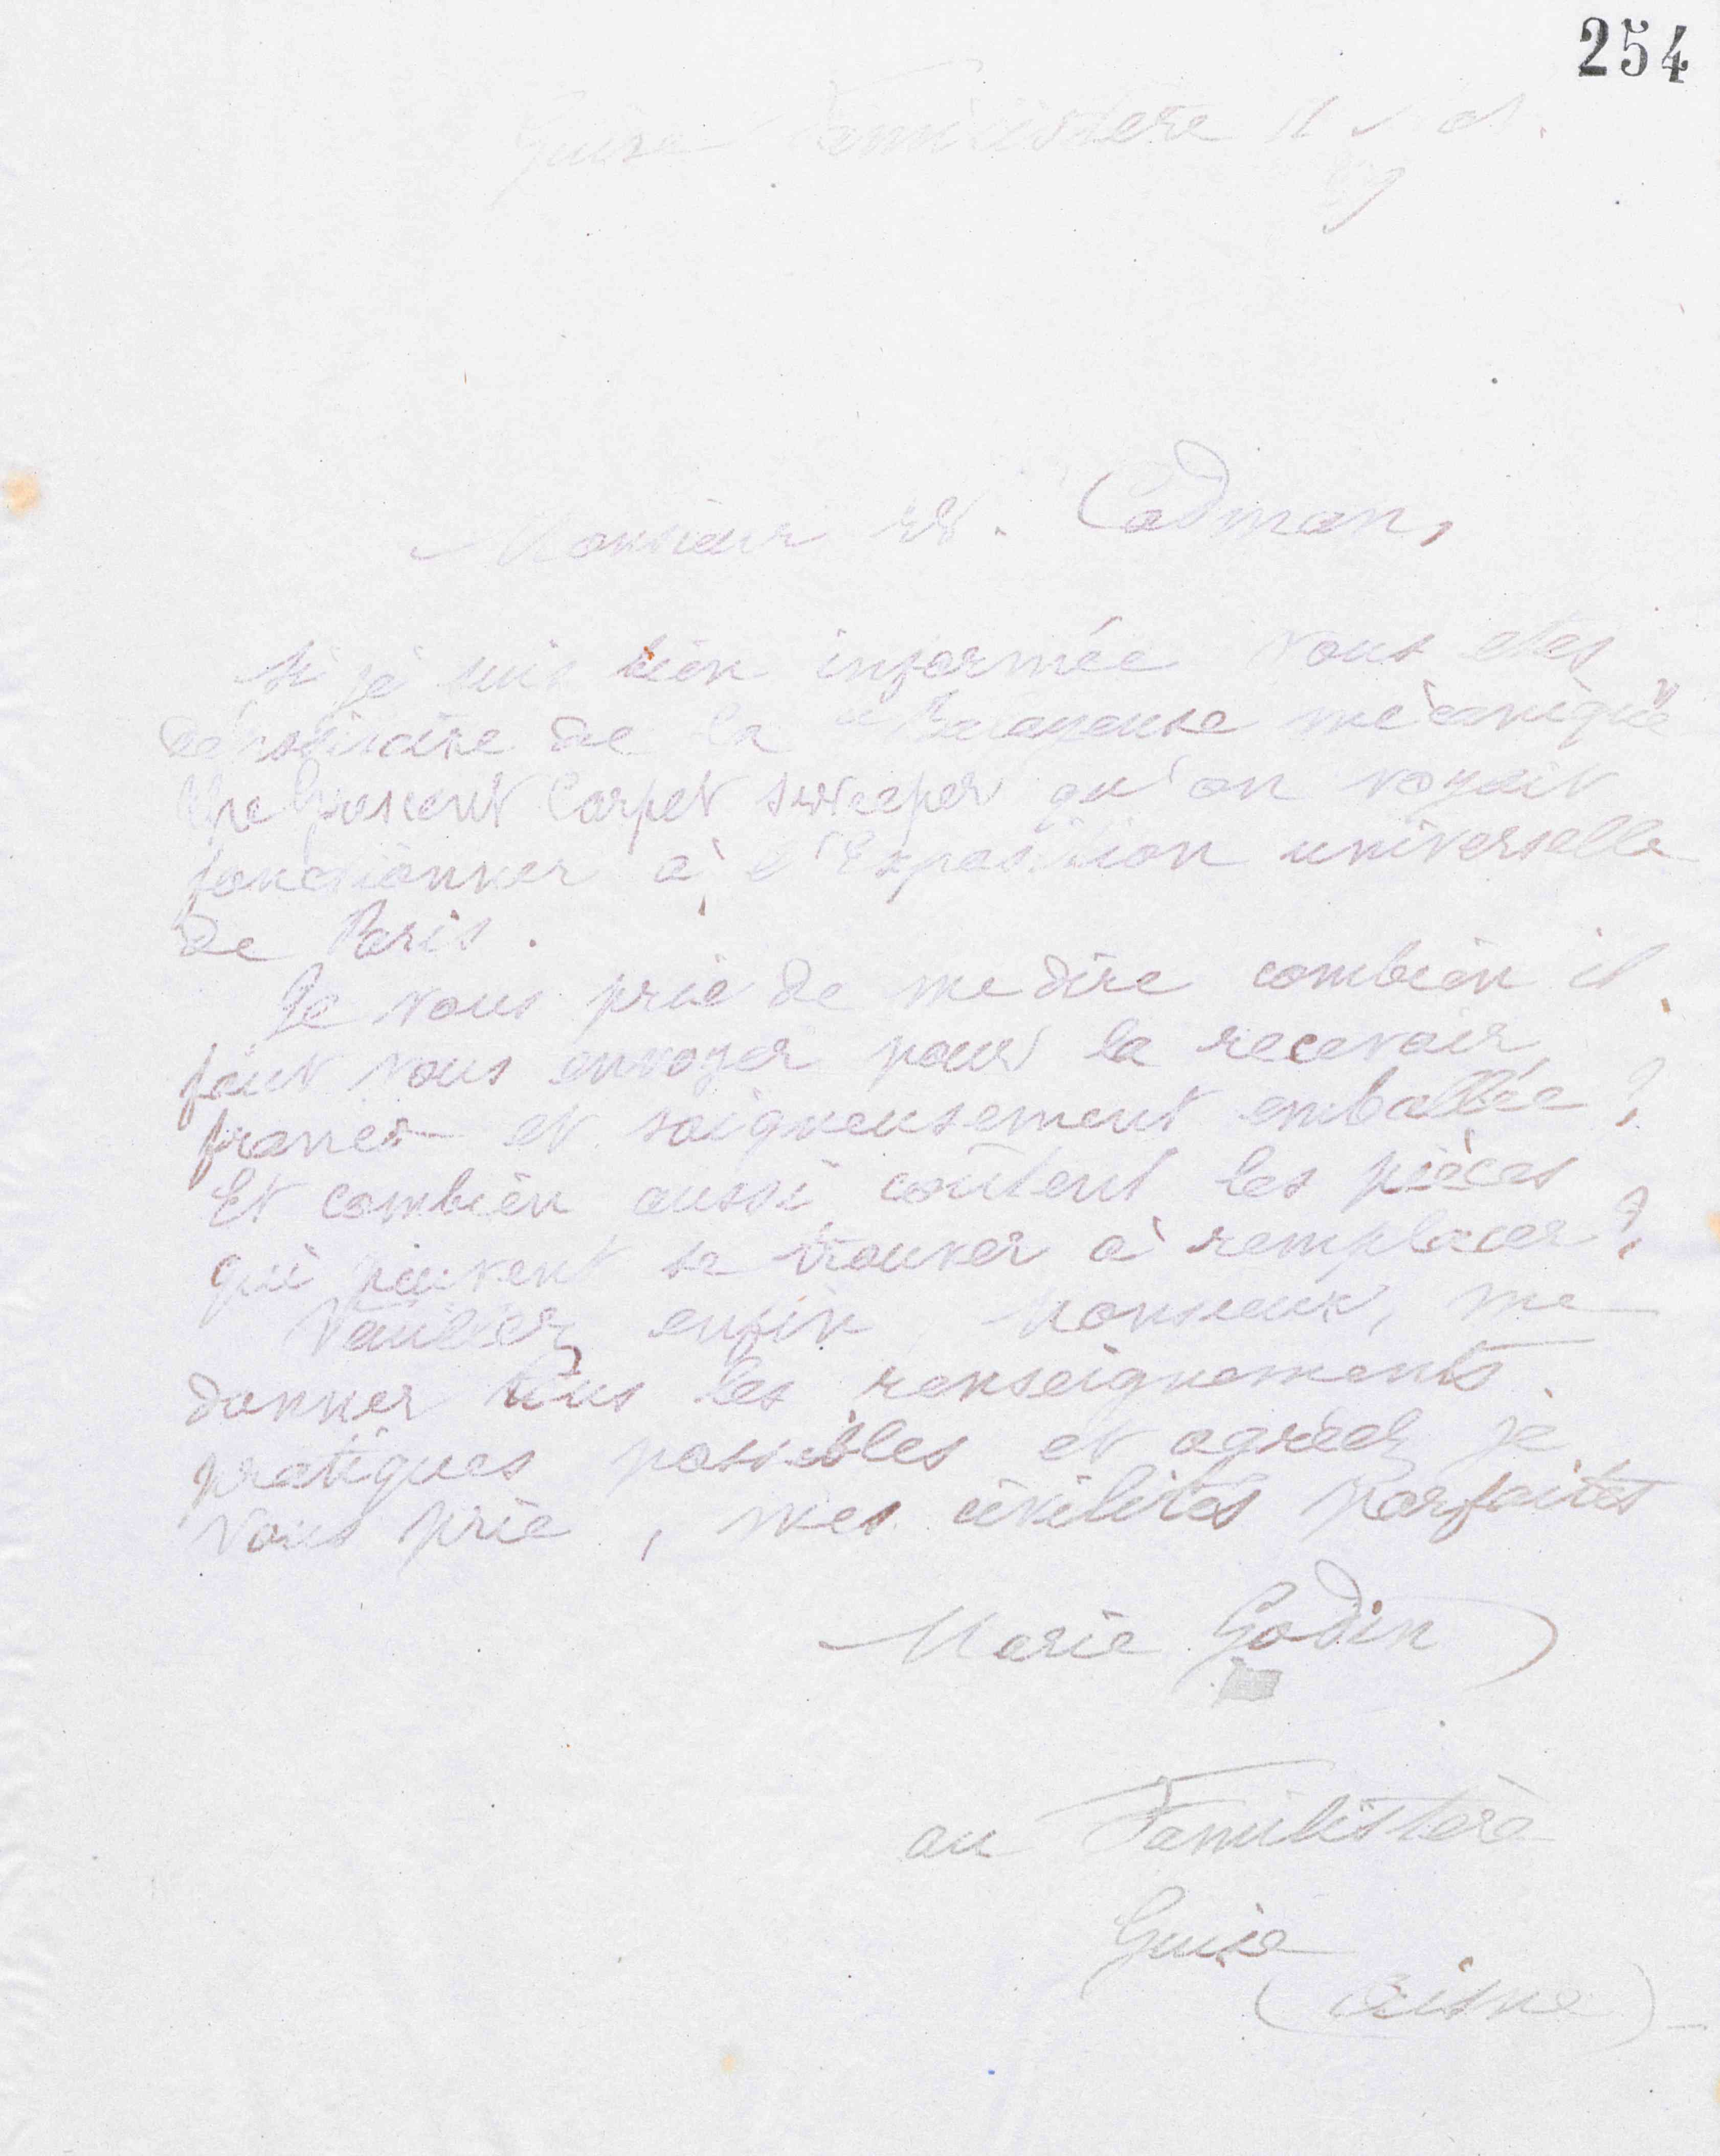 254
Guise Familistère
Monsieur W. Cadman,
Si je suis bien informée vous etes
dépositaire de la "Balayeuse mécanique"
the Carpet sweeper qu'on voyait
fonctionner à l'Exposition universelle
de Paris.
Je vous prie de me dire combien il
faut vous envoyer pour la recevoir
franco et soigneusement emballée?
Et combien aussi coûtent les pièces
qui peuvent se trouver à remplacer?
Veuillez enfin Monsieur, me
donner tous les renseignements
pratiques possibles et agréez je
vous prie, mes civilités parfaites
Marie Godin
au Familistère
Guise
(Aisne)